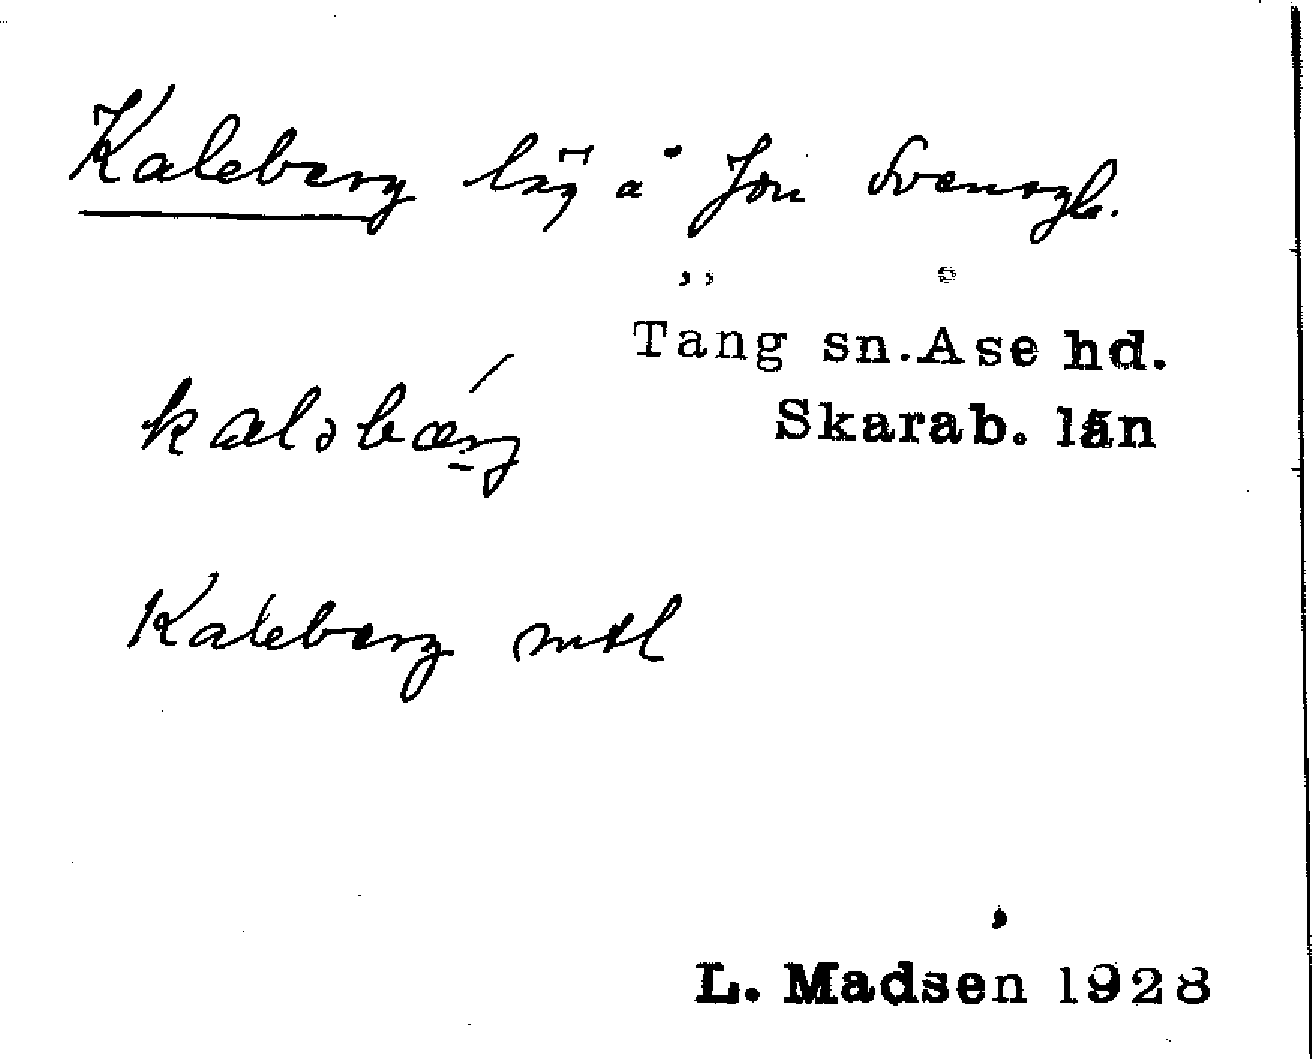 Kaleberg läg å Jon Svensgb.
Täng sn. Åse hd.
Skarab. län
kaləbærj
Kaleberg mtl
L. Madsen 1928